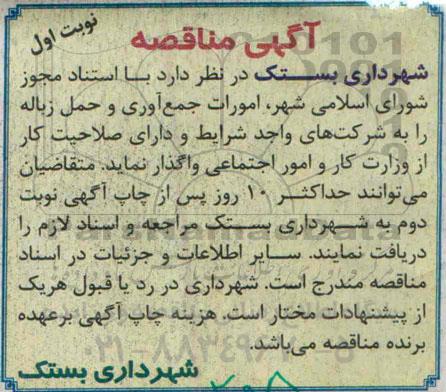 نوبت اول
آگهی مناقصه
شهرداری بستک در نظر دارد با استناد مجوز
شورای اسلامی شهر، امورات جمع‌آوری و حمل زباله
را به شرکت‌های واجد شرایط و دارای صلاحیت کار
از وزارت کار و امور اجتماعی واگذار نماید. متقاضیان
می‌توانند حداکثر ۱۰ روز پس از چاپ آگهی نوبت
دوم به شهرداری بستک مراجعه و اسناد لازم را
دریافت نمایند. سایر اطلاعات و جزئیات در اسناد
مناقصه مندرج است. شهرداری در رد یا قبول هریک
از پیشنهادات مختار است. هزینه چاپ آگهی برعهده
برنده مناقصه می‌باشد.
شهرداری بستک